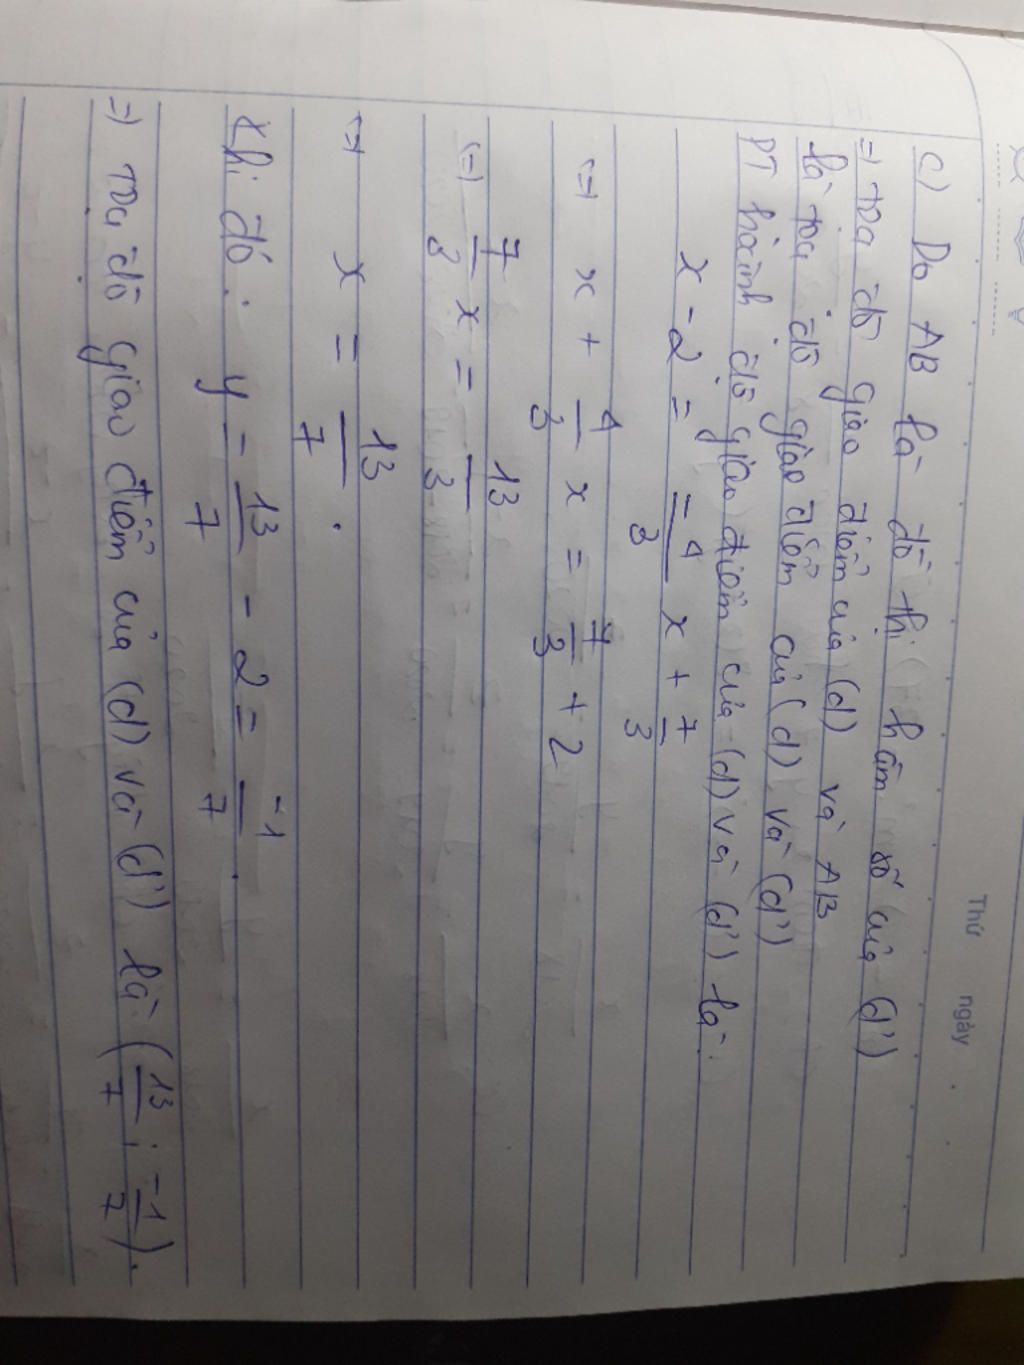 Thứ ngày
c) Do AB là đồ thị hàm số của (d')
=) toạ độ giao điểm của (d) và AB
là toạ độ giao điểm của (d) và (d')
PT hoành độ giao điểm của (d) và (d') là:
x - 2 = -4/3 x + 7/3
(=) x + 4/3 x = 7/3 + 2
(=) 7/3 x = 13/3
(=) x = 13/7.
Khi đó: y = 13/7 - 2 = -1/7.
=) Toạ độ giao điểm của (d) và (d') là (13/7; -1/7).